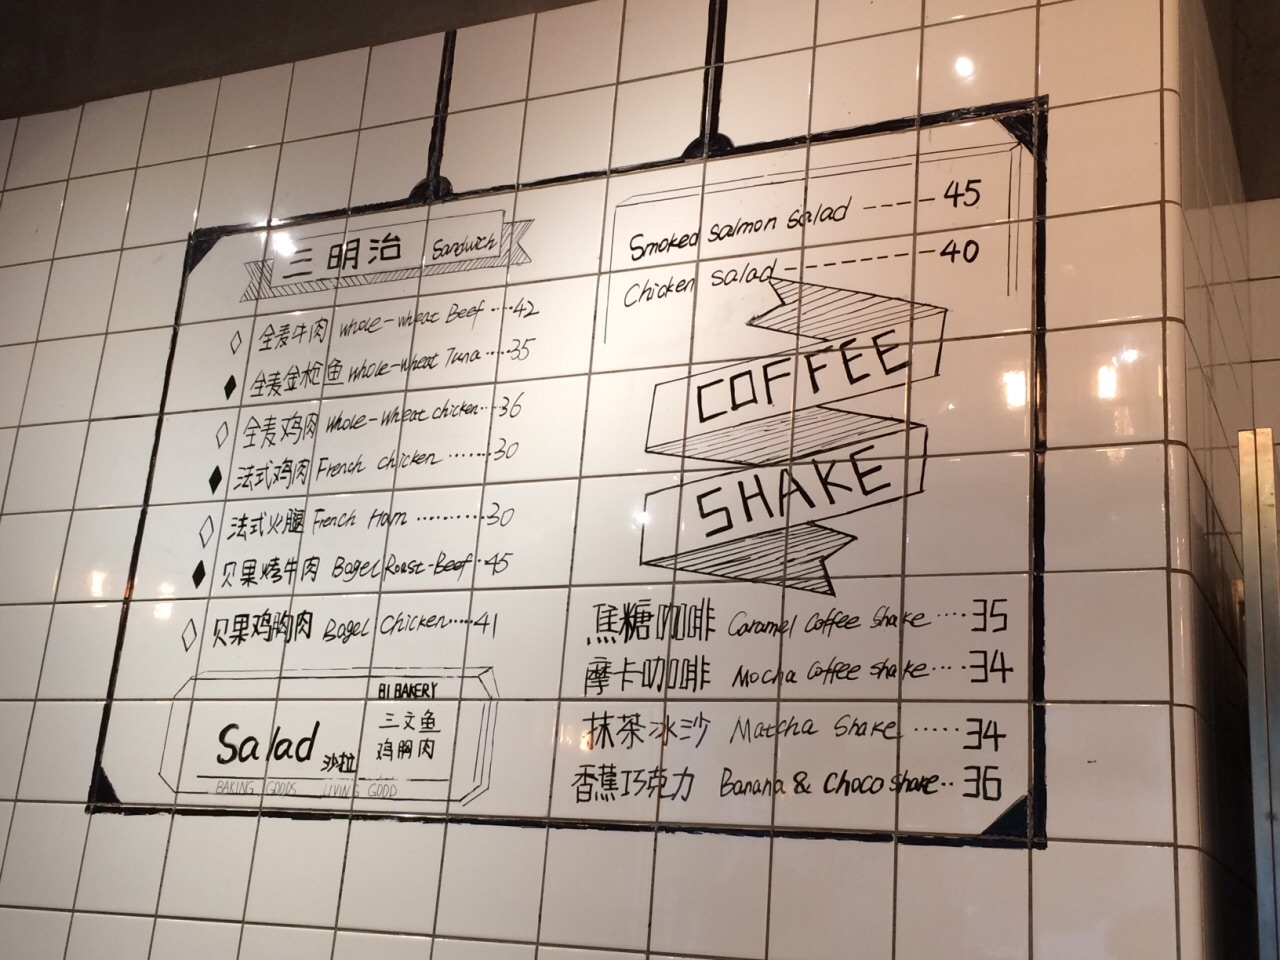 三明治 Sandwich
全麦牛肉 whole-wheat Beef ····42
全麦金枪鱼 whole-wheat Tuna ·····35
全麦鸡肉 whole-wheat chicken···36
法式鸡肉 French chicken ·······30
法式火腿 French Ham ··········30
贝果烤牛肉 Bagel Roast-Beef ··45
贝果鸡胸肉 Bagel Chicken·····41
BI BAKERY
Salad 沙拉
三文鱼
鸡胸肉
BAKING GOODS LIVING GOOD
Smoked salmon salad -----45
Chicken salad----------40
COFFEE
SHAKE
焦糖咖啡 Caramel Coffee shake ····35
摩卡咖啡 Mocha Coffee shake····34
抹茶冰沙 Matcha Shake ·····34
香蕉巧克力 Banana & Choco shake··36